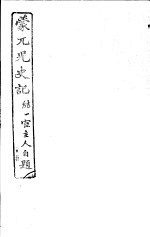 蒙兀兒史記 結一宧主人自題